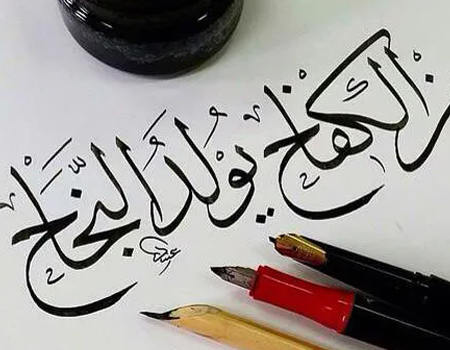 الكفاح يُولَدُ النَّجَاح